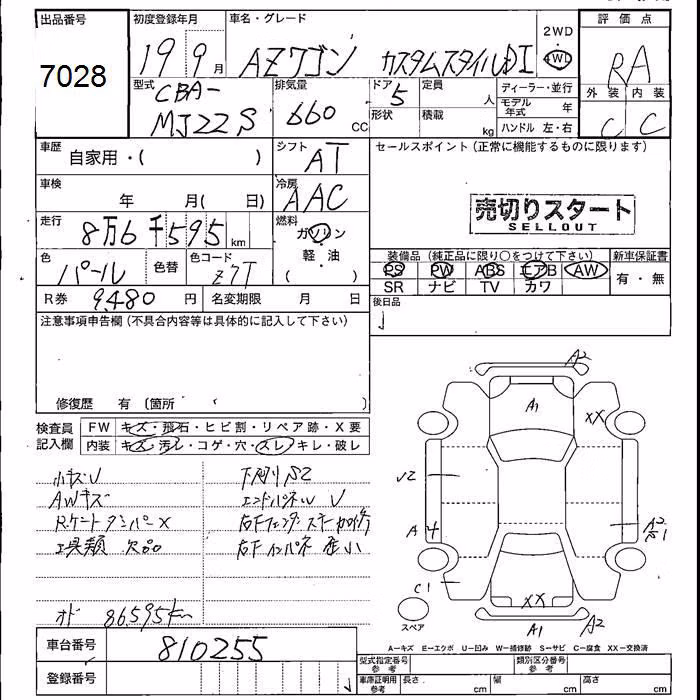 出品番号 初度登録年月 車名・グレード 評価点
7028 19 9月 AZワゴン カスタムスタイルDI 2WD 4WD RA
型式 CBA-MJ22S 排気量 660 CC ドア 5 形状 定員 人 積載 kg ディーラー・並行 モデル年式 年 ハンドル 左・右 外装 C 内装 C
車歴 自家用・( ) シフト AT セールスポイント(正常に機能するものに限ります)
車検 年 月( 日) 冷房 AAC
売切りスタート
SELLOUT
走行 8万6千595 km 燃料 ガソリン 軽・油 ( )
色 パール 色替 色コード Z7T
装備品(純正品に限り○をつけて下さい) 新車保証書
PS PW ABS エアB AW 有・無
SR ナビ TV カワ
R券 9,480 円 名変期限 月 日 後日品
注意事項申告欄(不具合内容等は具体的に記入して下さい)
修復歴 有(箇所
検査員記入欄 FW キズ・飛石・ヒビ割・リペア跡・X要
内装 キズ・汚レ・コゲ・穴・スレ・キレ・破レ
小キズU 下廻りS2
AWキズ エンドパネルU
Rゲートダンパー×
工具類 欠品
オド 86,595km
A2
A1
XX
U2
A4
A2
S1
C1
XX
A1 A2
スペア
A-キズ E-エクボ U-凹み W-補修跡 S-サビ C-腐食 XX-交換済
車台番号 810255
登録番号
型式指定番号 参考 類別区分番号 参考
車庫証明用 参考 長さ cm 幅 cm 高さ cm